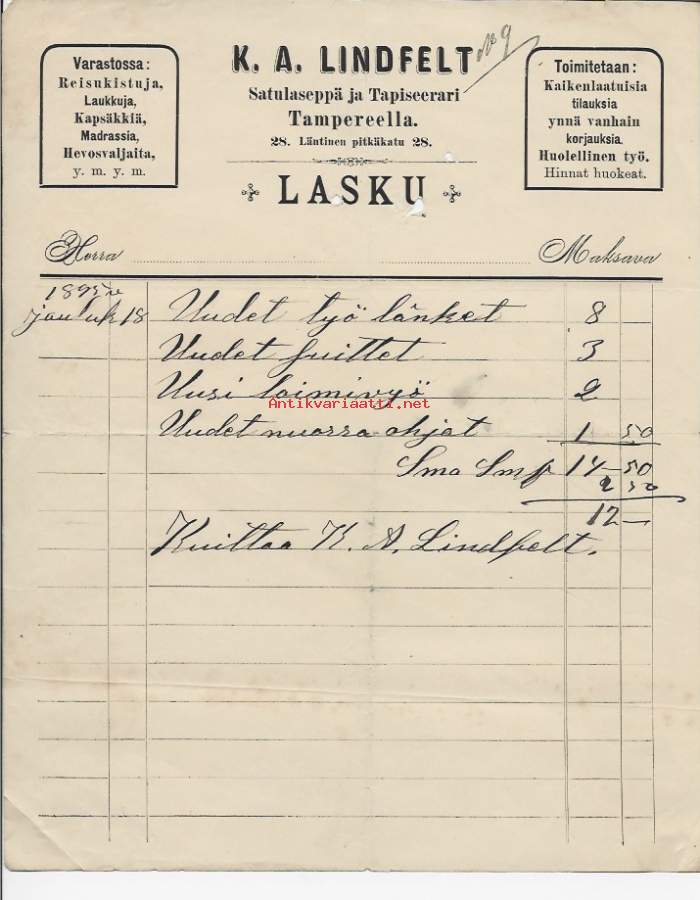 No 9
Varastossa:
Reisukistuja,
Laukkuja,
Kapsäkkiä,
Madrassia,
Hevosvaljaita,
y. m. y. m.
K. A. LINDFELT
Satulaseppä ja Tapiseerari
Tampereella.
28. Läntinen pitkäkatu 28.
LASKU
Toimitetaan:
Kaikenlaatuisia
tilauksia
ynnä vanhain
korjauksia.
Huolellinen työ.
Hinnat huokeat.
Herra Maksava
1895
jouluk 18 Uudet työ länket 8
Uudet suittet 3
Uusi loimivyö 2
Antikvariaatti.net
Uudet nuorra ohjat 1 50
Sma Smf 14-50
2 50
12 —
Kuittaa K. A. Lindfelt.